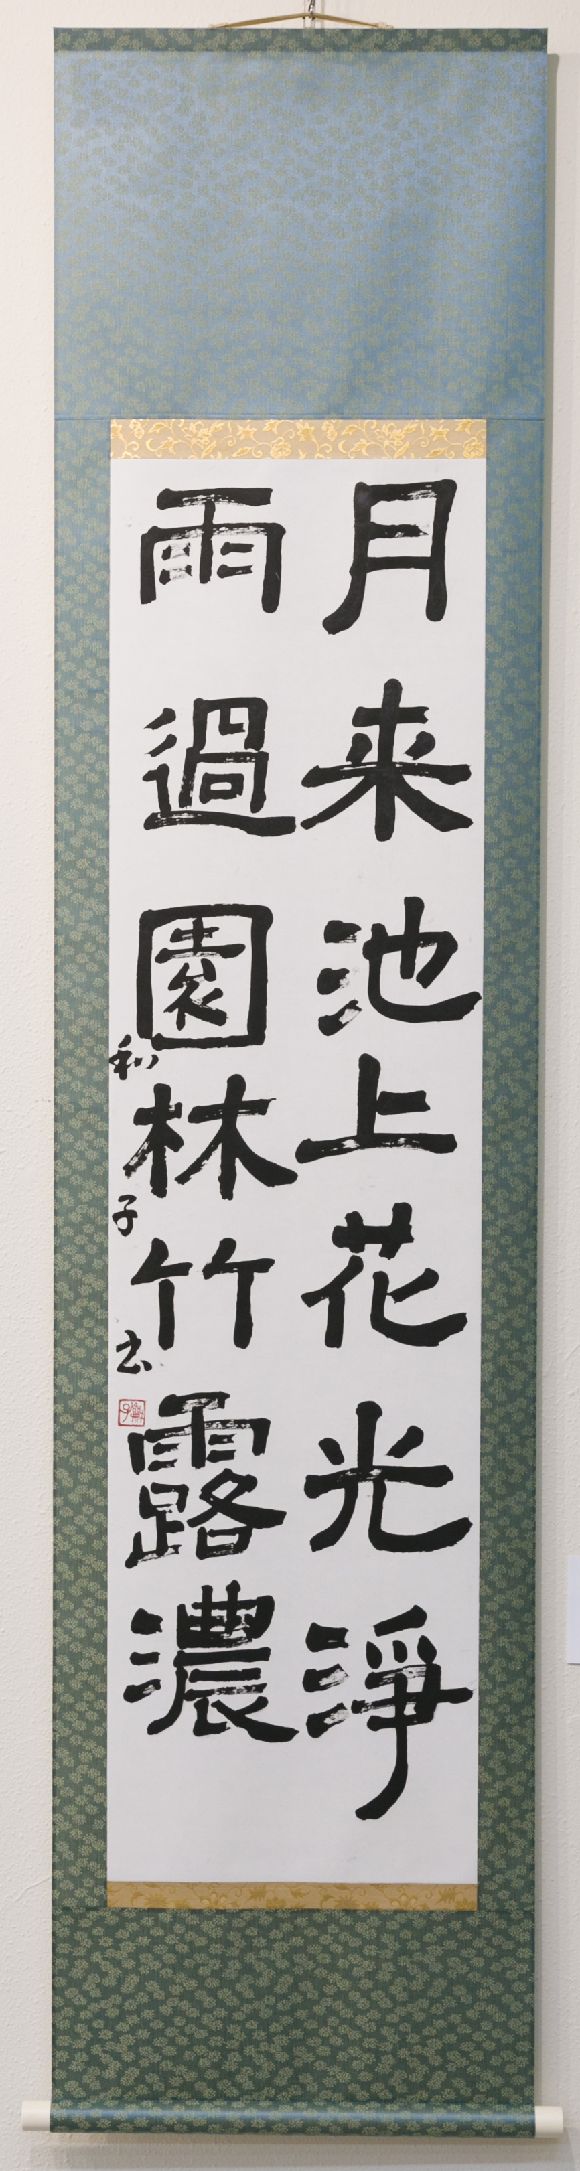 月来池上花光淨
雨過園林竹露濃
和子书